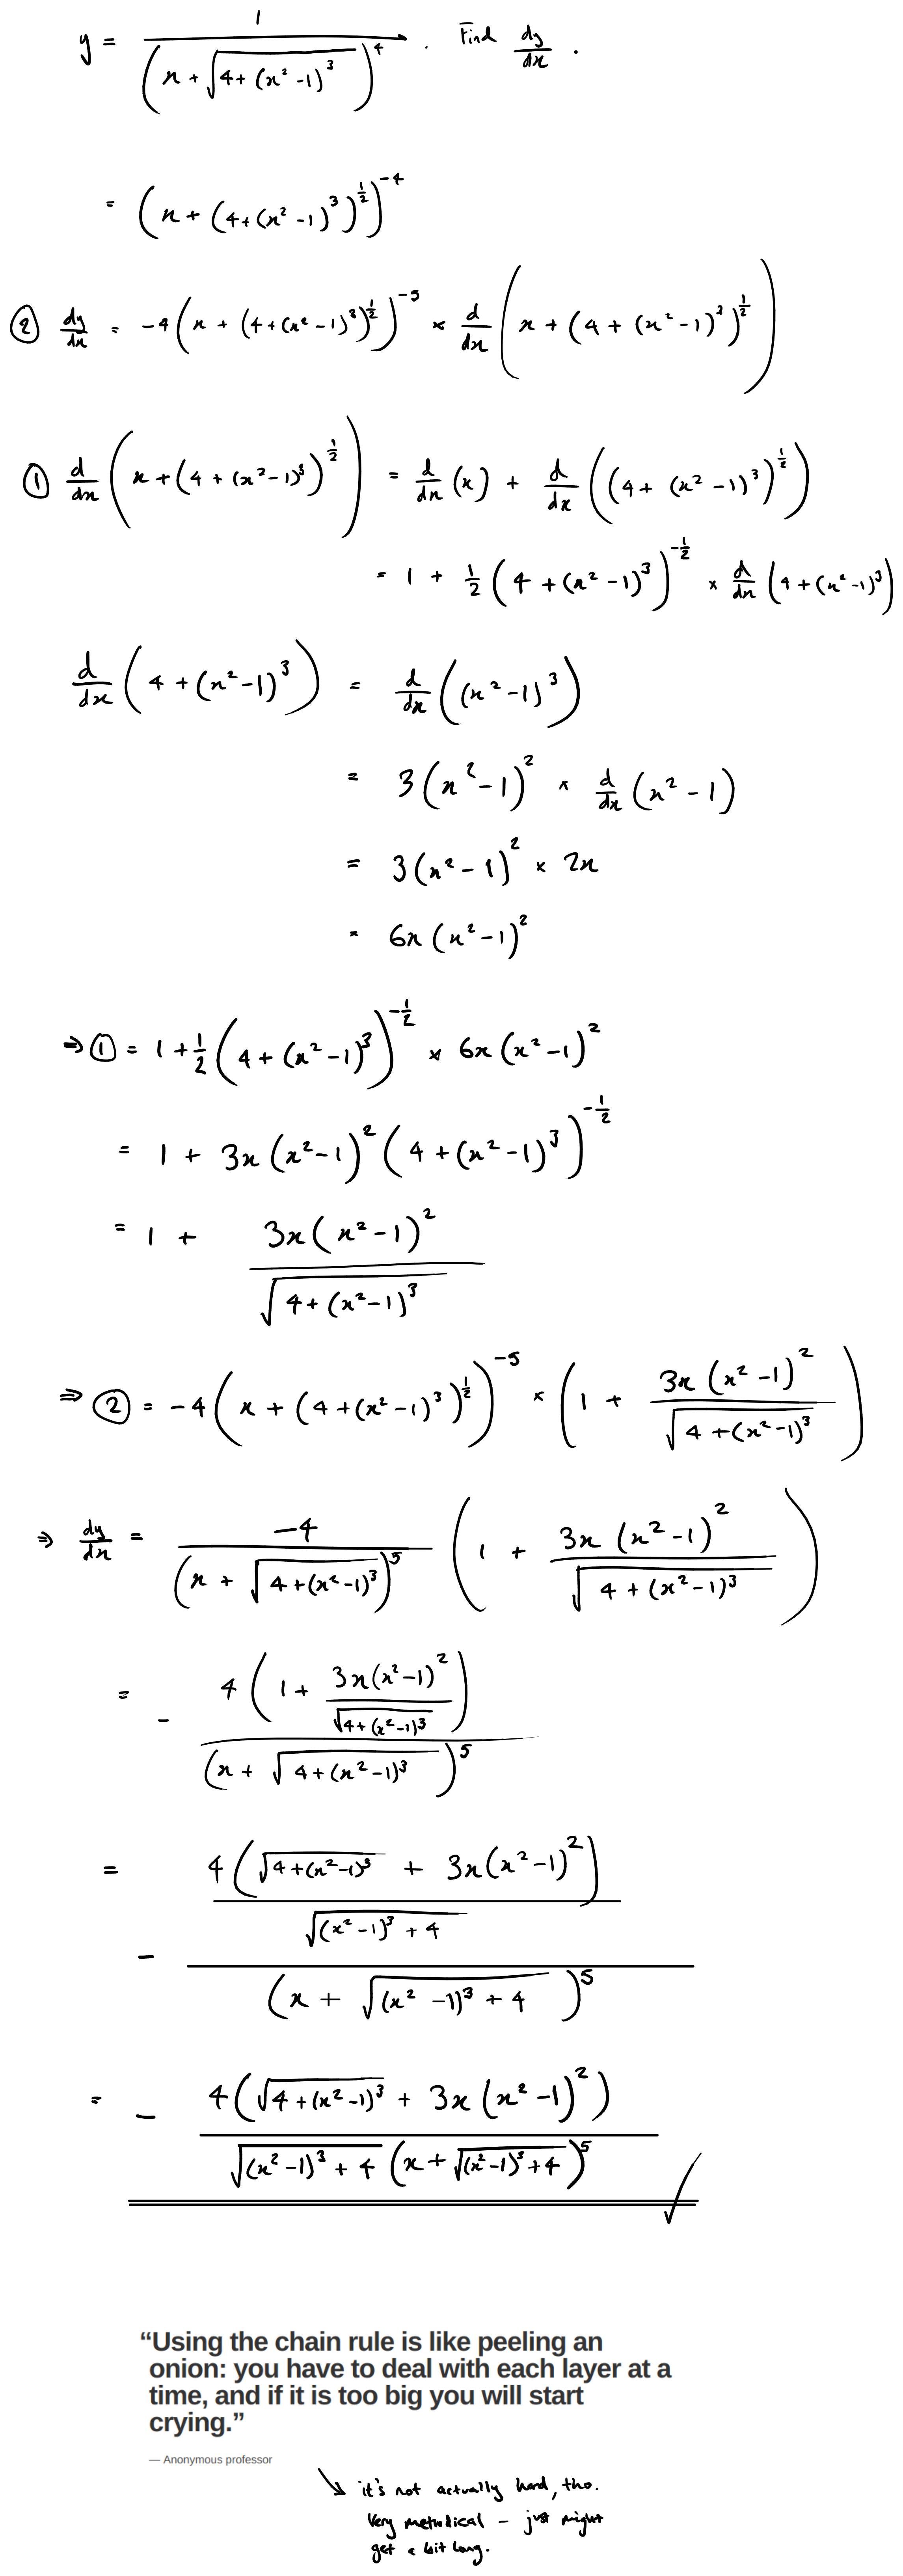 y = 1/(x + √(4 + (x² - 1)³))⁴ . Find dy/dx .
= (x + (4 + (x² - 1)³)^½)^-4
② dy/dx = -4(x + (4 + (x² - 1)³)^½)^-5 × d/dx (x + (4 + (x² - 1)³)^½)
① d/dx (x + (4 + (x² - 1)³)^½) = d/dx (x) + d/dx ((4 + (x² - 1)³)^½)
= 1 + ½(4 + (x² - 1)³)^-½ × d/dx (4 + (x² - 1)³)
d/dx (4 + (x² - 1)³) = d/dx ((x² - 1)³)
= 3(x² - 1)² × d/dx (x² - 1)
= 3(x² - 1)² × 2x
= 6x(x² - 1)²
⇒ ① = 1 + ½(4 + (x² - 1)³)^-½ × 6x(x² - 1)²
= 1 + 3x(x² - 1)²(4 + (x² - 1)³)^-½
= 1 + 3x(x² - 1)²/√(4 + (x² - 1)³)
⇒ ② = -4(x + (4 + (x² - 1)³)^½)^-5 × (1 + 3x(x² - 1)²/√(4 + (x² - 1)³))
⇒ dy/dx = -4/(x + √(4 + (x² - 1)³))⁵ (1 + 3x(x² - 1)²/√(4 + (x² - 1)³))
= - 4(1 + 3x(x² - 1)²/√(4 + (x² - 1)³))/(x + √(4 + (x² - 1)³))⁵
= - (4(√(4 + (x² - 1)³) + 3x(x² - 1)²)/√((x² - 1)³ + 4))/(x + √((x² - 1)³ + 4))⁵
= - 4(√(4 + (x² - 1)³) + 3x(x² - 1)²)/(√((x² - 1)³ + 4) (x + √((x² - 1)³ + 4))⁵) ✓
“Using the chain rule is like peeling an
onion: you have to deal with each layer at a
time, and if it is too big you will start
crying.”
— Anonymous professor
↘ it's not actually hard, tho.
Very methodical - just might
get a bit long.